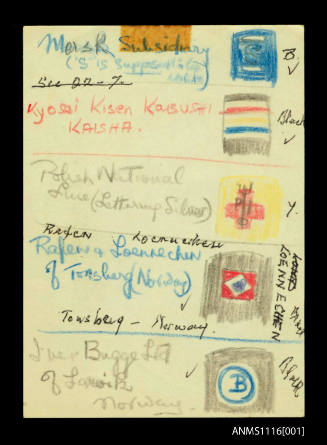 Mersk Subsidiary
("S" is supposed to be
B.
See 22-7.
Kyosei Kisen KABUSHI
KAISHA.
Black
Polish National
Line (Lettering Silver)
Y.
Rafen Loennechen
Rafen & Loennechen
of Tonsberg Norway)
LOENNECHEN
Tonsberg - Norway.
Iver Bugge Ltd
of Larvik
Norway.
B
Black
ANMS1116[001]